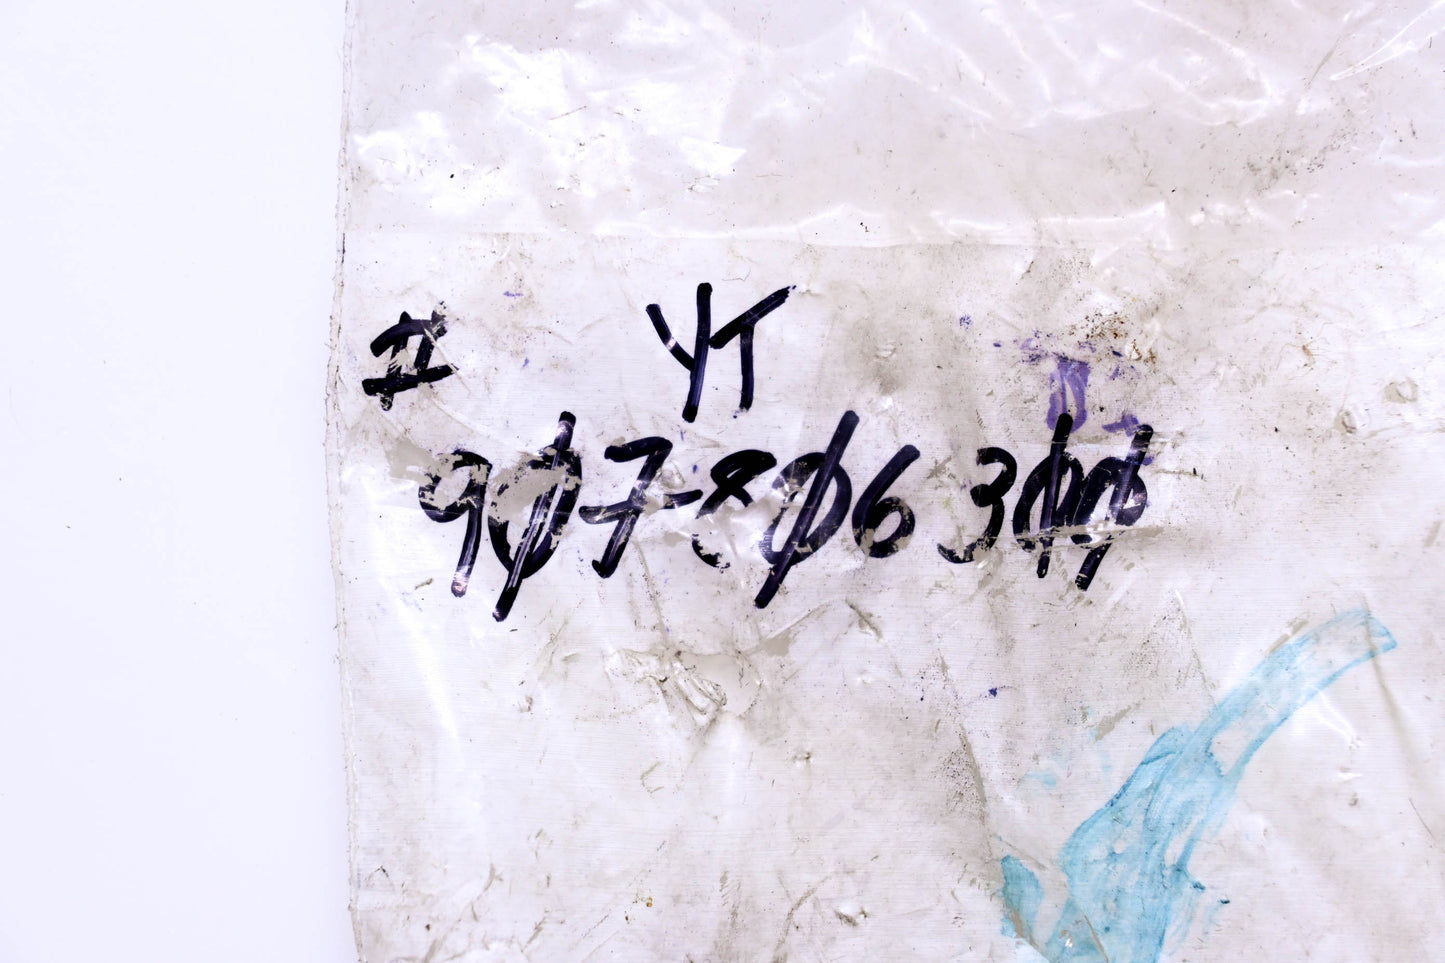 # YT
907-806 300